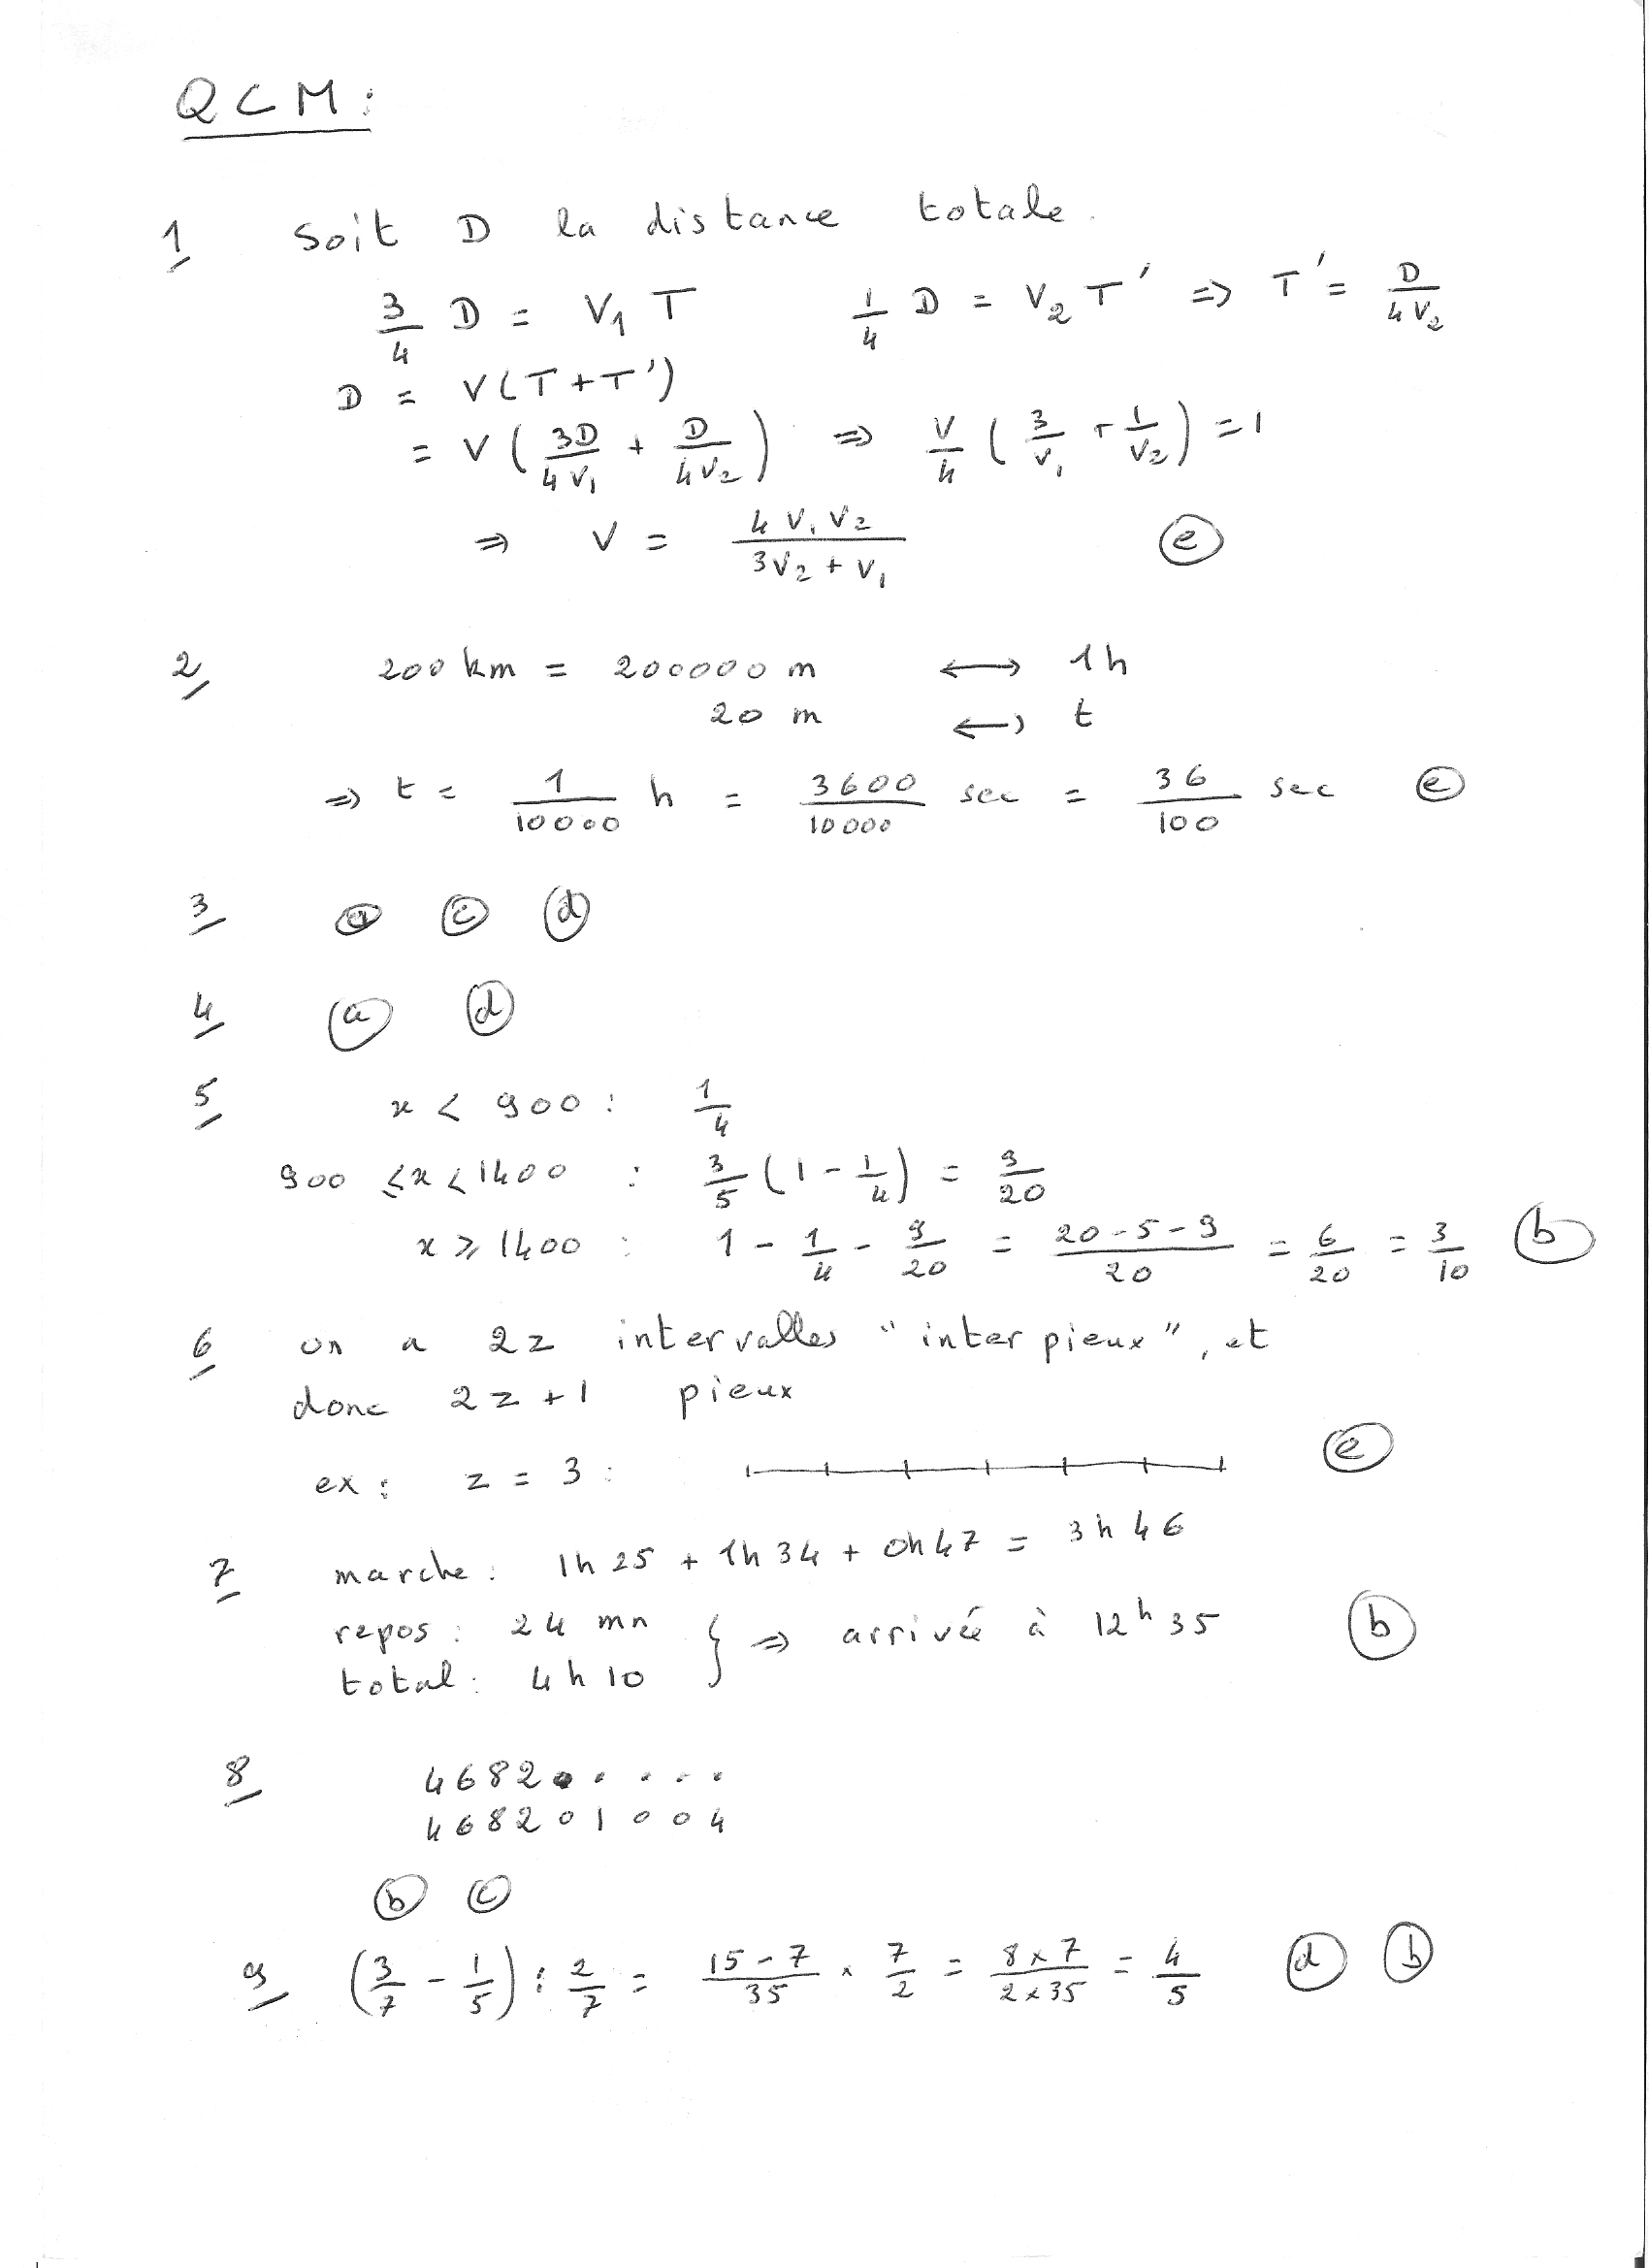 QCM :
1 Soit D la distance totale.
3/4 D = V₁ T    1/4 D = V₂ T' ⇒ T' = D/4V₂
D = V(T+T')
= V(3D/4V₁ + D/4V₂) ⇒ V/4 (3/V₁ + 1/V₂) = 1
⇒ V = 4V₁V₂/(3V₂ + V₁)    e
2 200 km = 200000 m ⟷ 1h
20 m ⟷ t
⇒ t = 1/10000 h = 3600/10000 sec = 36/100 sec    e
3 a c d
4 a d
5 x < 900 : 1/4
900 ≤ x < 1400 : 3/5 (1 - 1/4) = 9/20
x ⩾ 1400 : 1 - 1/4 - 9/20 = (20-5-9)/20 = 6/20 = 3/10    b
6 on a 2z intervalles "inter pieux", et
donc 2z+1 pieux
ex : z = 3 :    e
7 marche : 1h25 + 1h34 + 0h47 = 3h46
repos : 24 mn
total : 4h10 } ⇒ arrivée à 12h35    b
8 4682.....
468201004
b c
9 (3/7 - 1/5) : 2/7 = (15-7)/35 × 7/2 = (8×7)/(2×35) = 4/5    d b